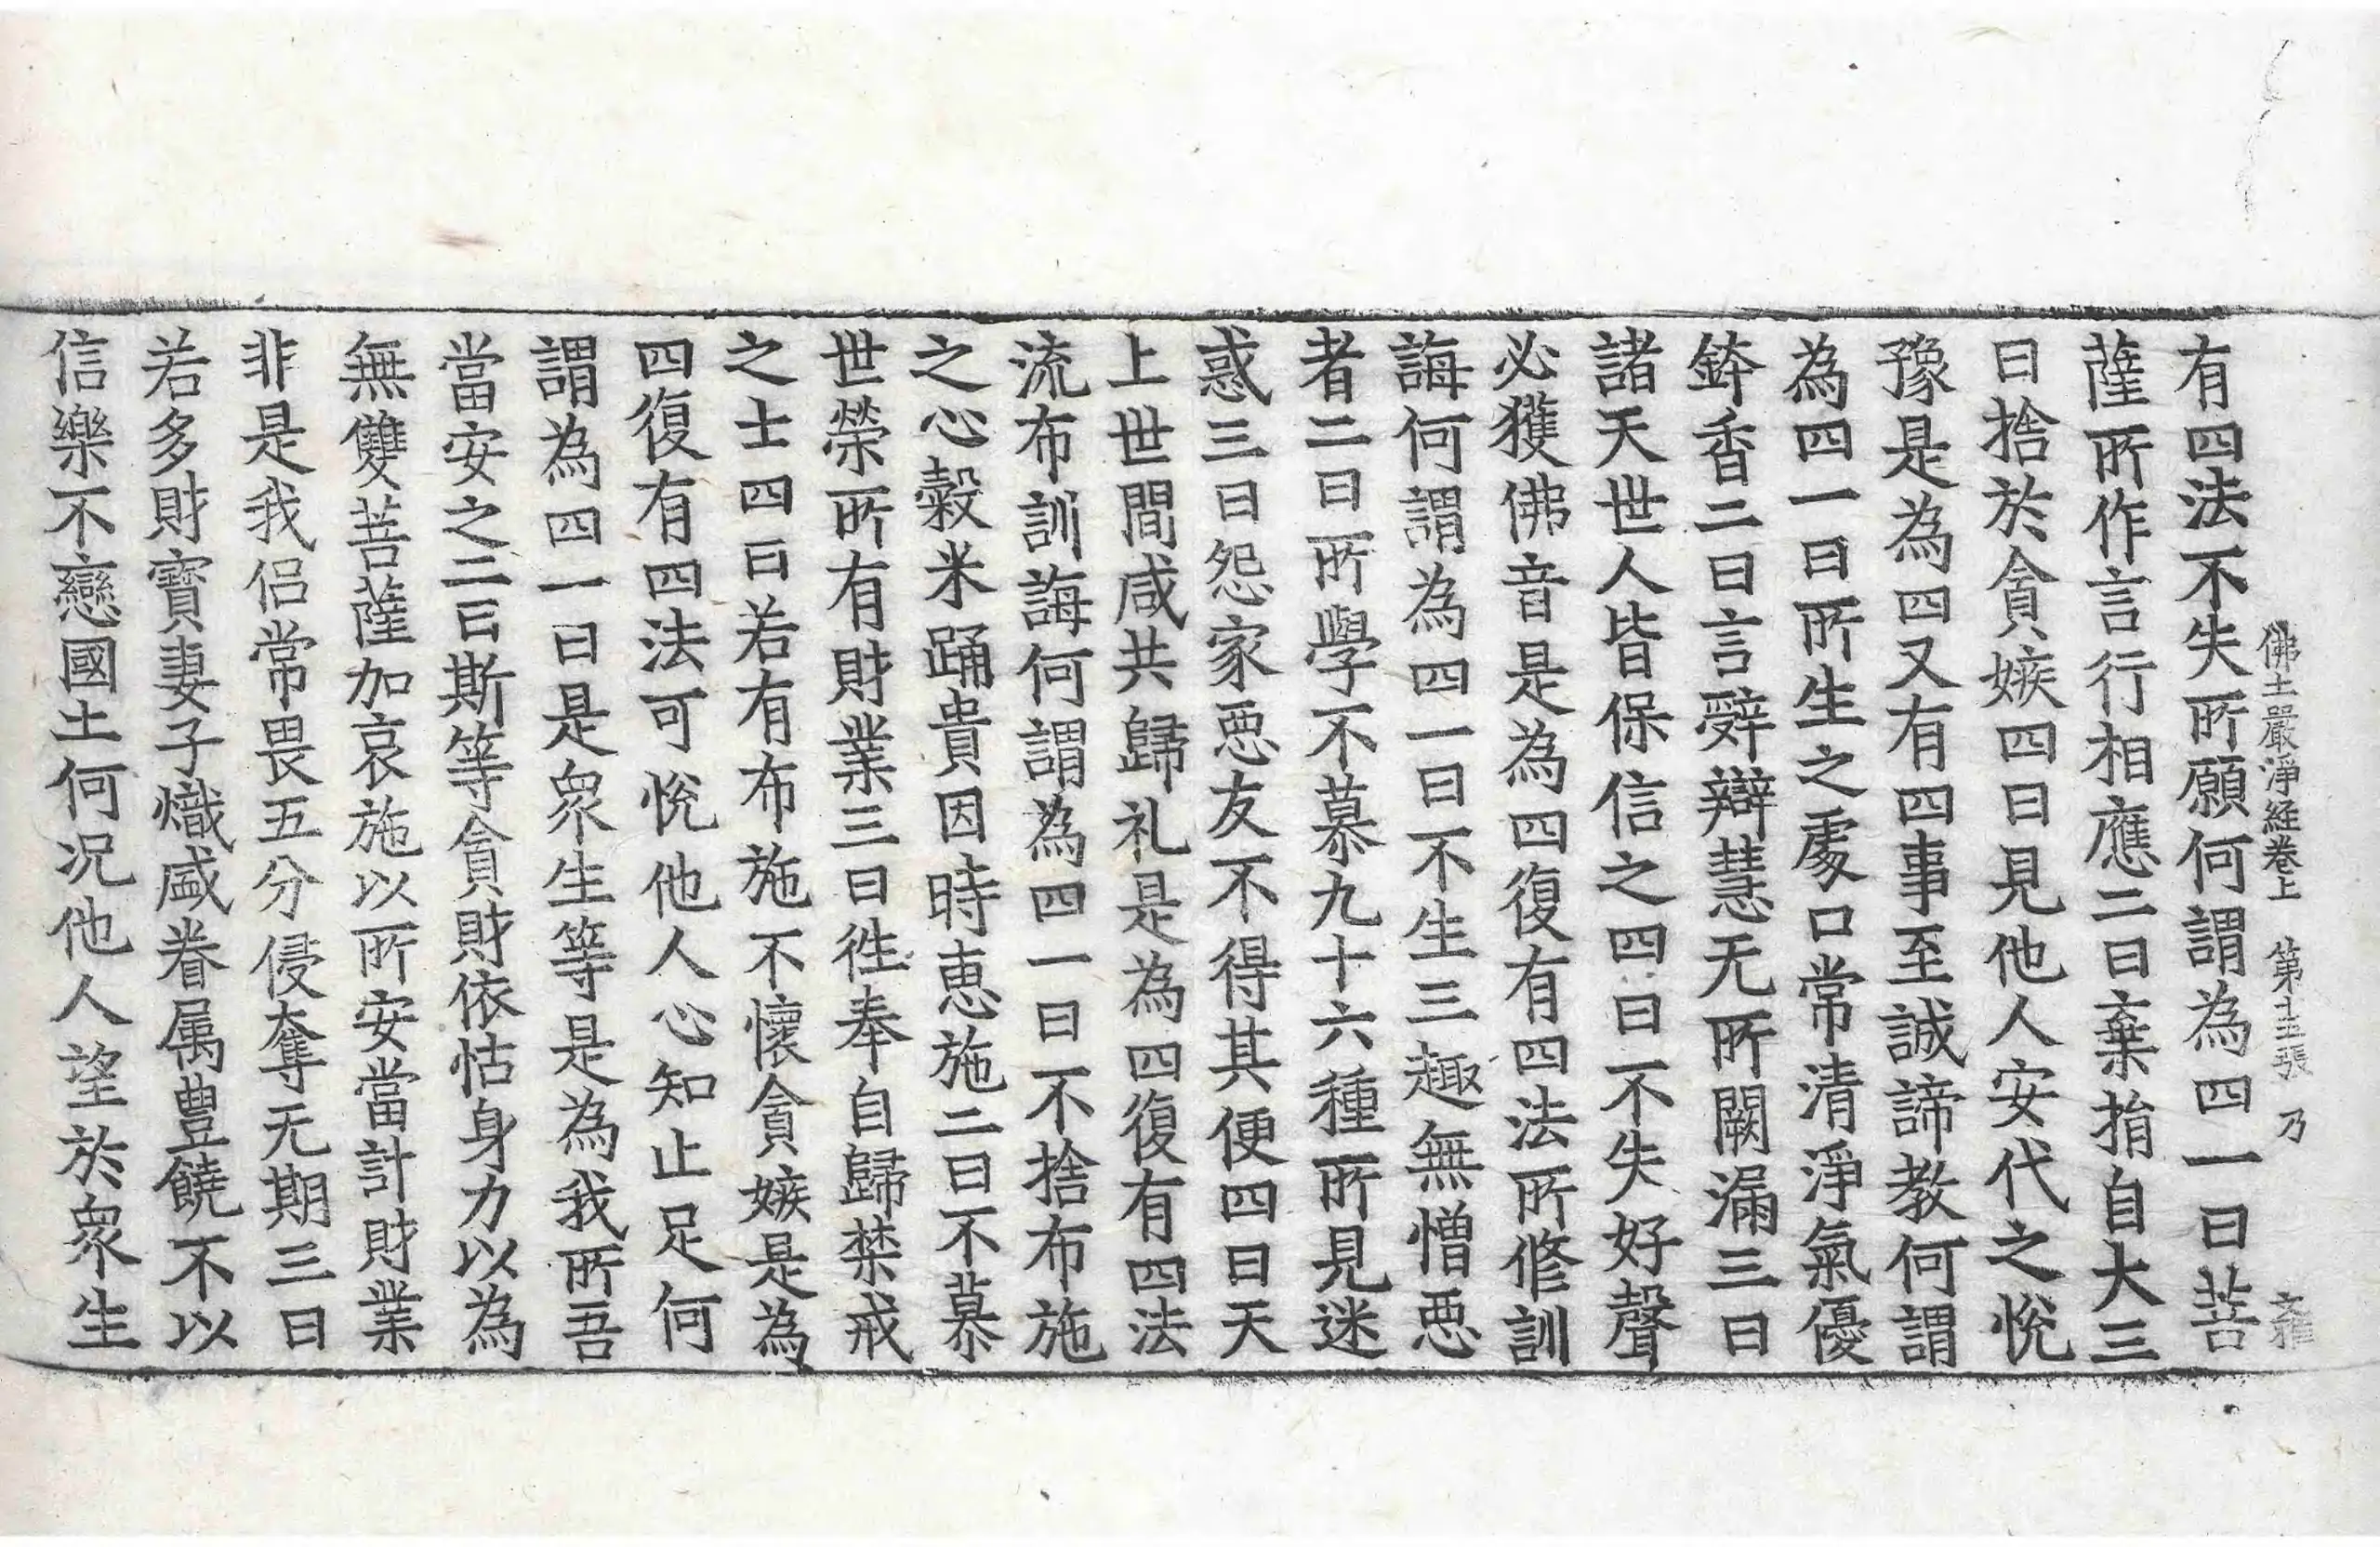 佛土嚴淨経卷上 第十五張 乃
有四法不失所願何謂為四一曰菩
薩所作言行相應二曰棄捐自大三
曰捨於貪嫉四曰見他人安代之悅
豫是為四又有四事至誠諦教何謂
為四一曰所生之處口常清淨氣優
鉢香二曰言辭辯慧无所闕漏三曰
諸天世人皆保信之四曰不失好聲
必獲佛音是為四復有四法所修訓
誨何謂為四一曰不生三趣無憎惡
者二曰所學不慕九十六種所見迷
惑三曰怨家惡友不得其便四曰天
上世間咸共歸礼是為四復有四法
流布訓誨何謂為四一曰不捨布施
之心穀米踊貴因時恵施二曰不慕
世榮所有財業三曰徃奉自歸禁戒
之士四曰若有布施不懷貪嫉是為
四復有四法可悅他人心知止足何
謂為四一曰是衆生等是為我所吾
當安之二曰斯等貪財依怙身力以為
無雙菩薩加哀施以所安當計財業
非是我侶常畏五分侵奪无期三曰
若多財寶妻子熾盛眷属豊饒不以
信樂不戀國土何况他人望於衆生